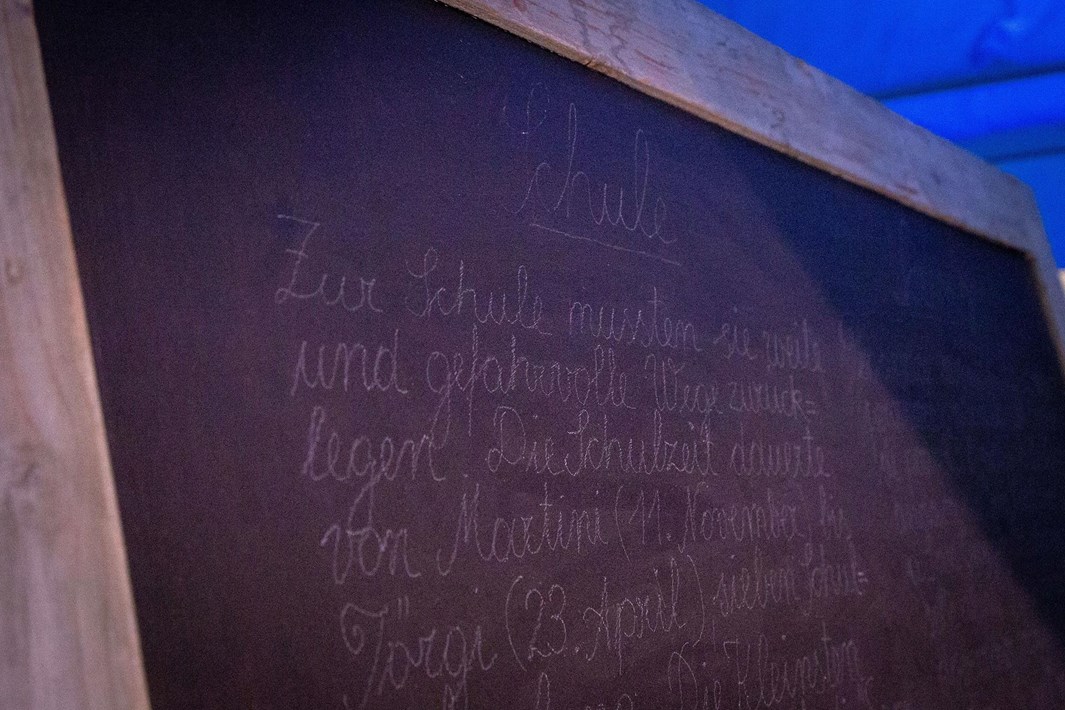 Schule
Zur Schule mussten sie weite
und gefahrvolle Wege zurück=
legen. Die Schulzeit dauerte
von Martini (11. November) bis
Jörgi (23. April) sieben Schul=
Die Kleinsten